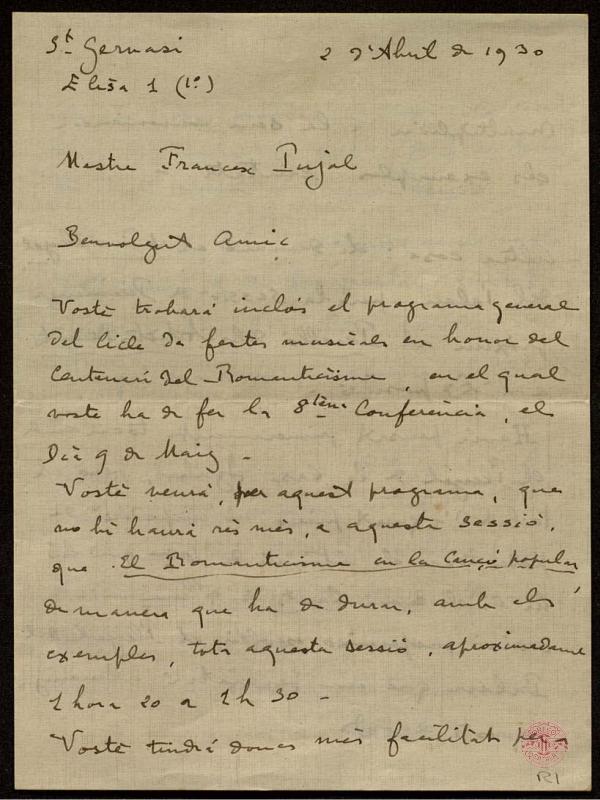 St Gervasi
2 d'Abril de 1930
Elisa 1 (1º)
Mestre Francesc Pujol
Benvolgut Amic
Vostè trobará inclós el programa general
del Cicle de festes musicals en honor del
Centenari del Romanticisme, en el qual
vostè ha de fer la 8tena Conferència, el
Dia 9 de Maig -
Vostè veurá, per aquest programa, que
no hi haurá rès mès, a aquesta sessió,
que El Romanticisme en la Cançó popular,
de manera que ha de durar, amb els
exemples, tota aquesta sessió, aproximadame
1 hora 20 a 1h 30 -
Vostè tindrá doncs mès facilitat per-
R1